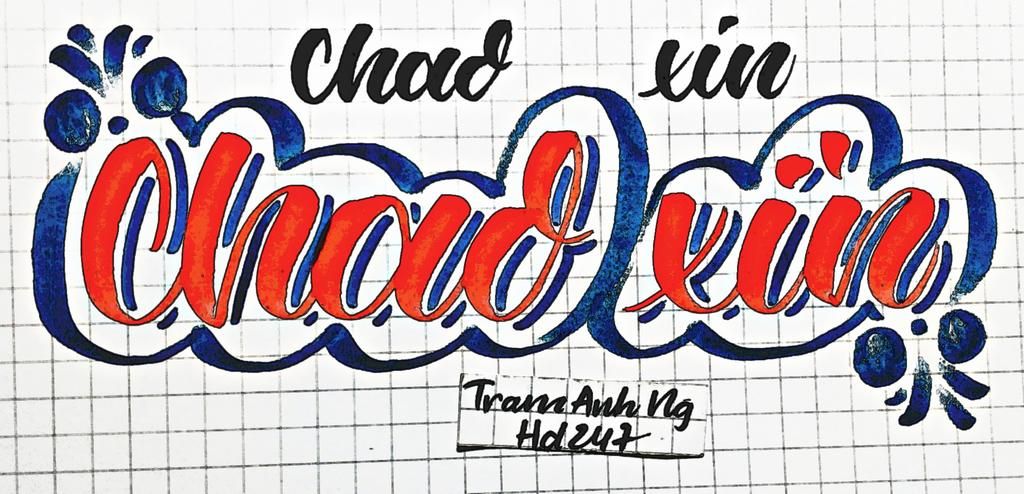 chao xin
chao xin
Tram Anh Ng
Hd247